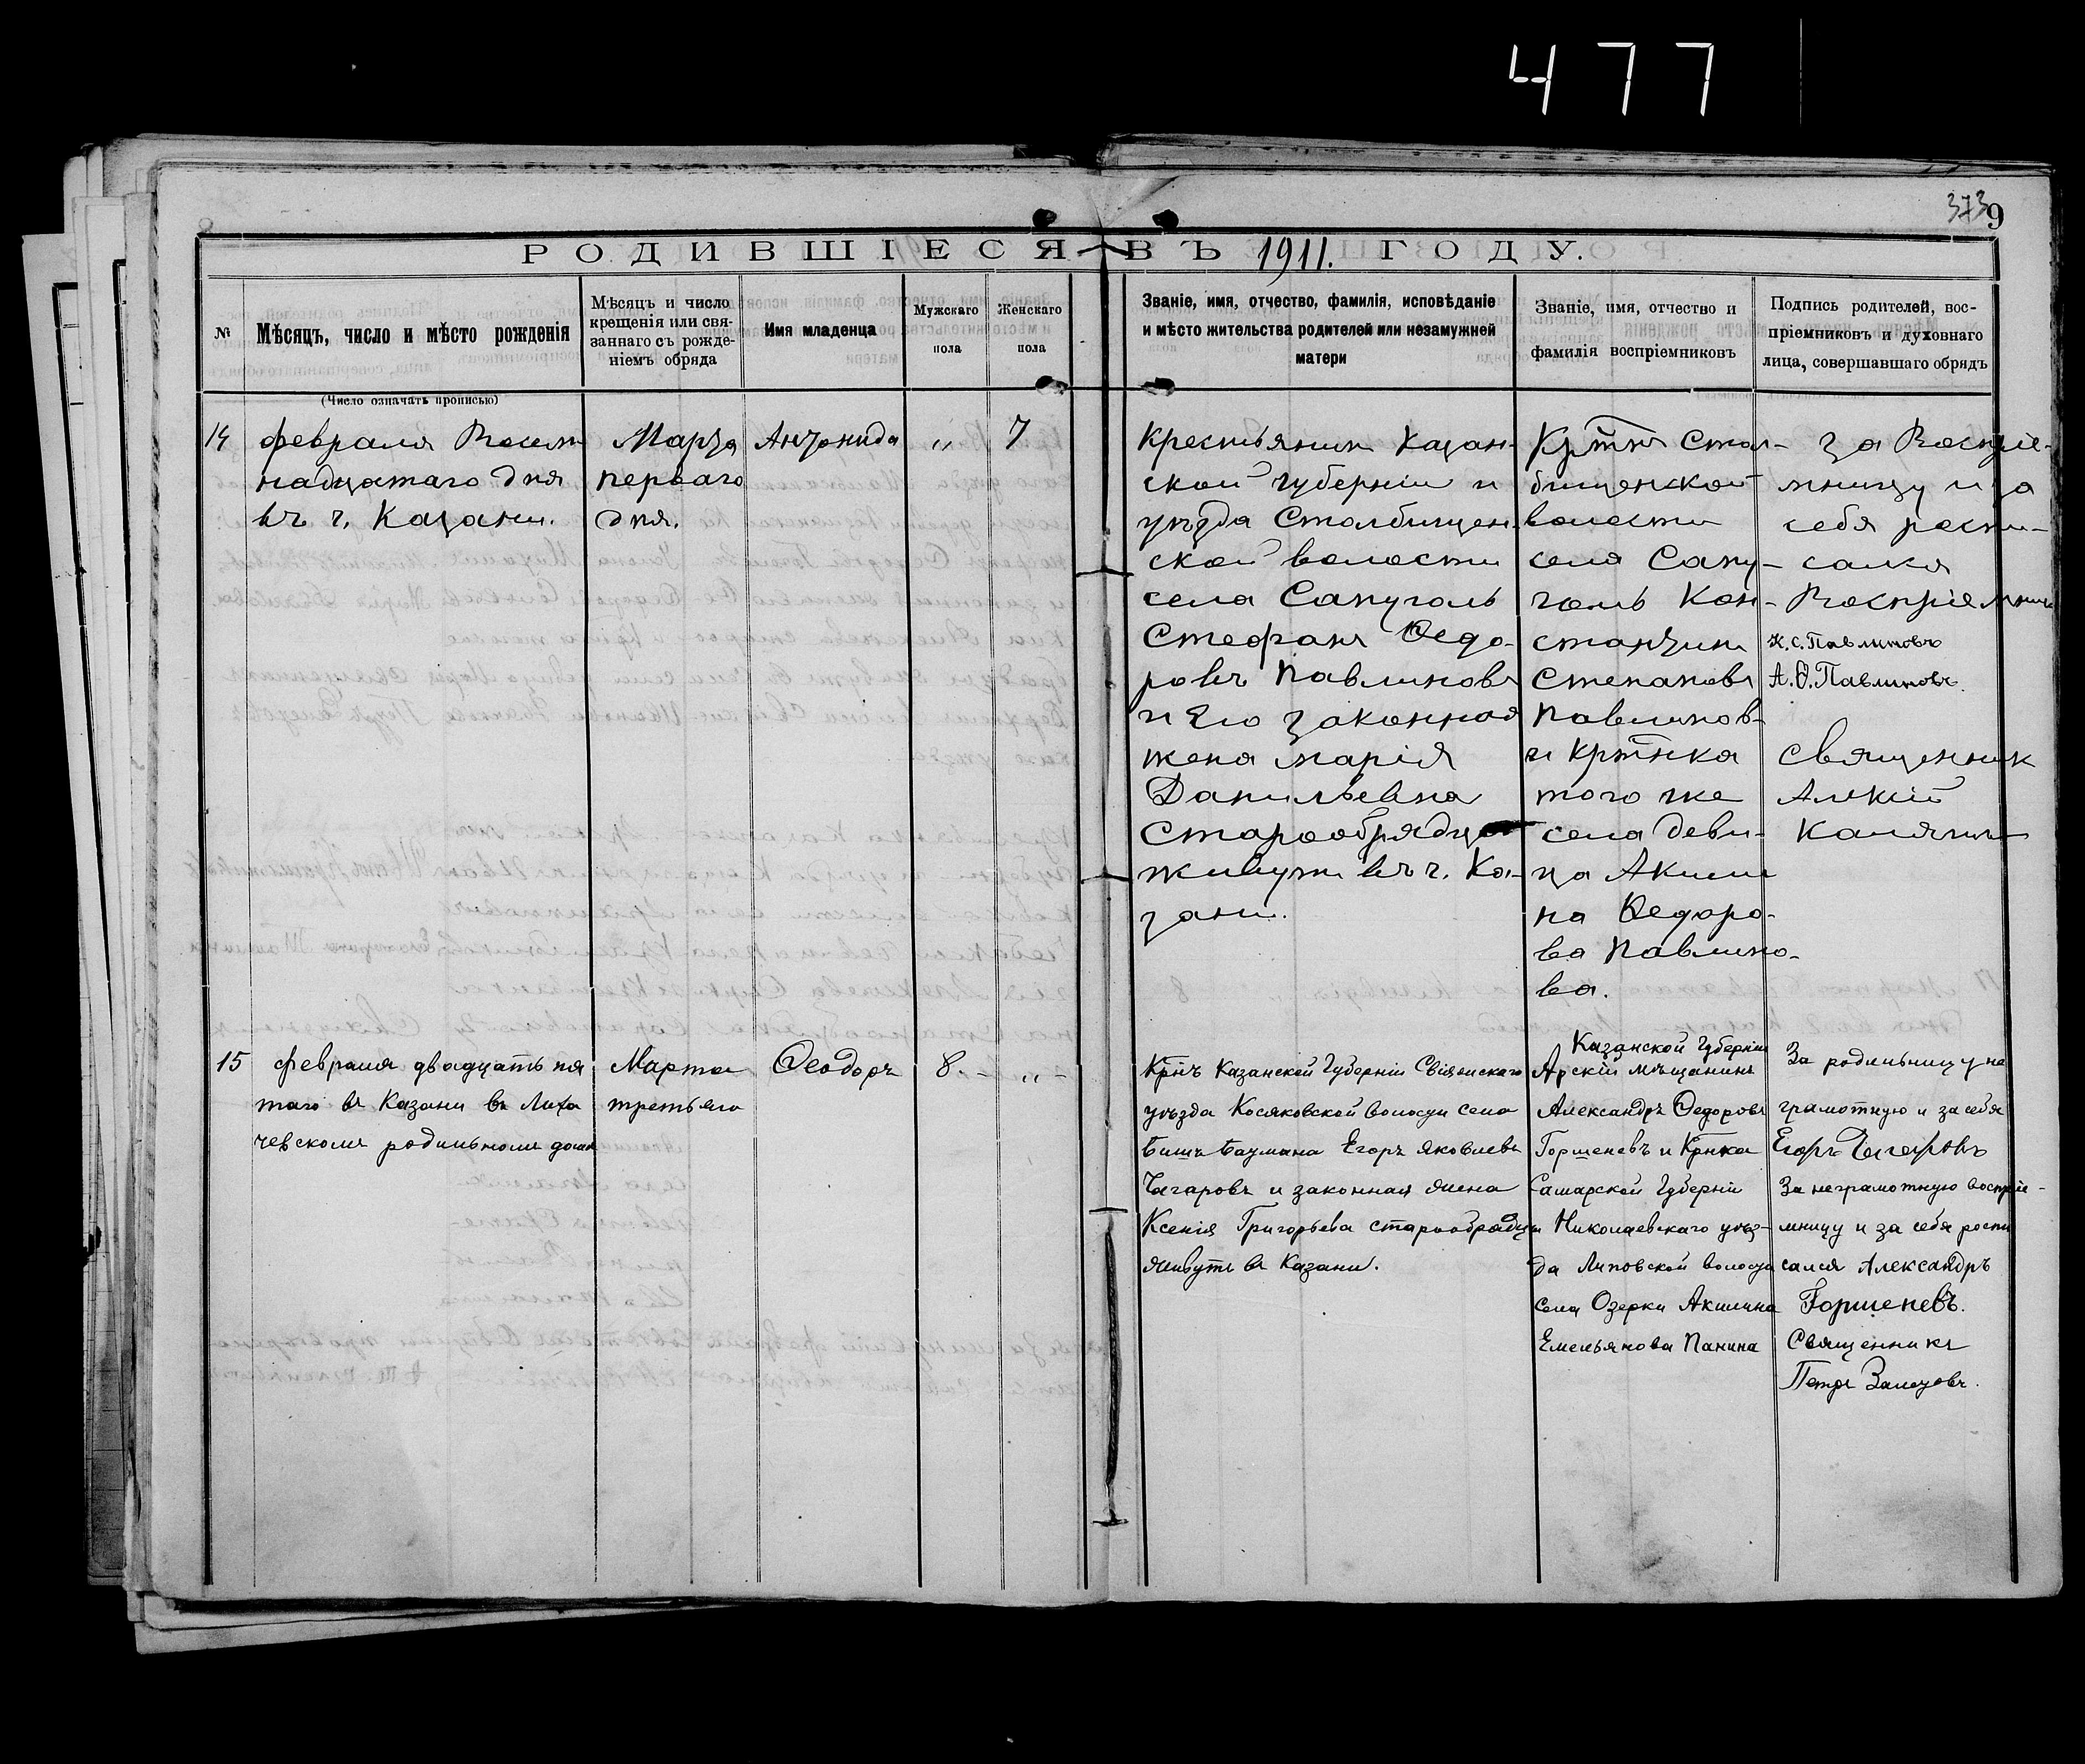 477
373 9
РОДИВШІЕСЯ ВЪ 1911. ГОДУ.
№
Мѣсяцъ, число и мѣсто рожденія
Мѣсяцъ и число
крещенія или свя-
заннаго съ рожде-
ніемъ обряда
Имя младенца
Мужскаго
пола
Женскаго
пола
Званіе, имя, отчество, фамилія, исповѣданіе
и мѣсто жительства родителей или незамужней
матери
Званіе, имя, отчество и
фамилія воспріемниковъ
Подпись родителей, вос-
пріемниковъ и духовнаго
лица, совершавшаго обрядъ
(Число означать прописью)
14
февраля Восем
надцатаго дня
въ г. Казани.
Марта
перваго
дня.
Антонида
"
7
Крестьянин Казан-
ской губерніи и
уѣзда Столбищен-
ской волости
села Сапуголь
Стефанъ Ѳедо-
ровъ Павлиновъ
и Его законная
жена марія
Данильевна
Старообрядцы
живутъ въ г. Ка-
зани.
Крт̃нъ Стол-
бищенской
волости
села Сапу-
голь Кон-
стантин
Степановъ
Павлинов-
и крт̃нка
того же
села деви-
ца Акили
на Ѳедоро-
ва Павлино-
ва.
За Воспріе-
мницу и за
себя роспи-
салея
Воспріемник
К.С. Павлиновъ
А.Ѳ. Павлиновъ.
Священник
Алекій
Калягин
15
февраля двадцать пя
таго въ Казани въ Лиха
чевскомъ родильномъ домѣ
Марта
третьяго
Ѳеодоръ
8. -
" -
Крнъ Казанской Губерніи Свіяжскаго
уѣзда Косяковской волости село
Бишъ Баумана Егоръ Яковлевъ
Чагаровъ и законная жена
Ксенія Григорьева старообрядцы
живутъ въ Казани.
Казанской Губерніи
Арскій мѣщанинъ
Александръ Ѳедоровъ
Горшеневъ и Крнка
Самарской Губерніи
Николаевскаго уѣз-
да Липовской волости
села Озерки Акилина
Емельянова Панина
За родильницу не
грамотную и за себя
Егоръ Чагаровъ
За неграмотную воспріе-
мницу и за себя роспи
сался Александръ
Горшеневъ.
Священникъ
Петръ Залетовъ.